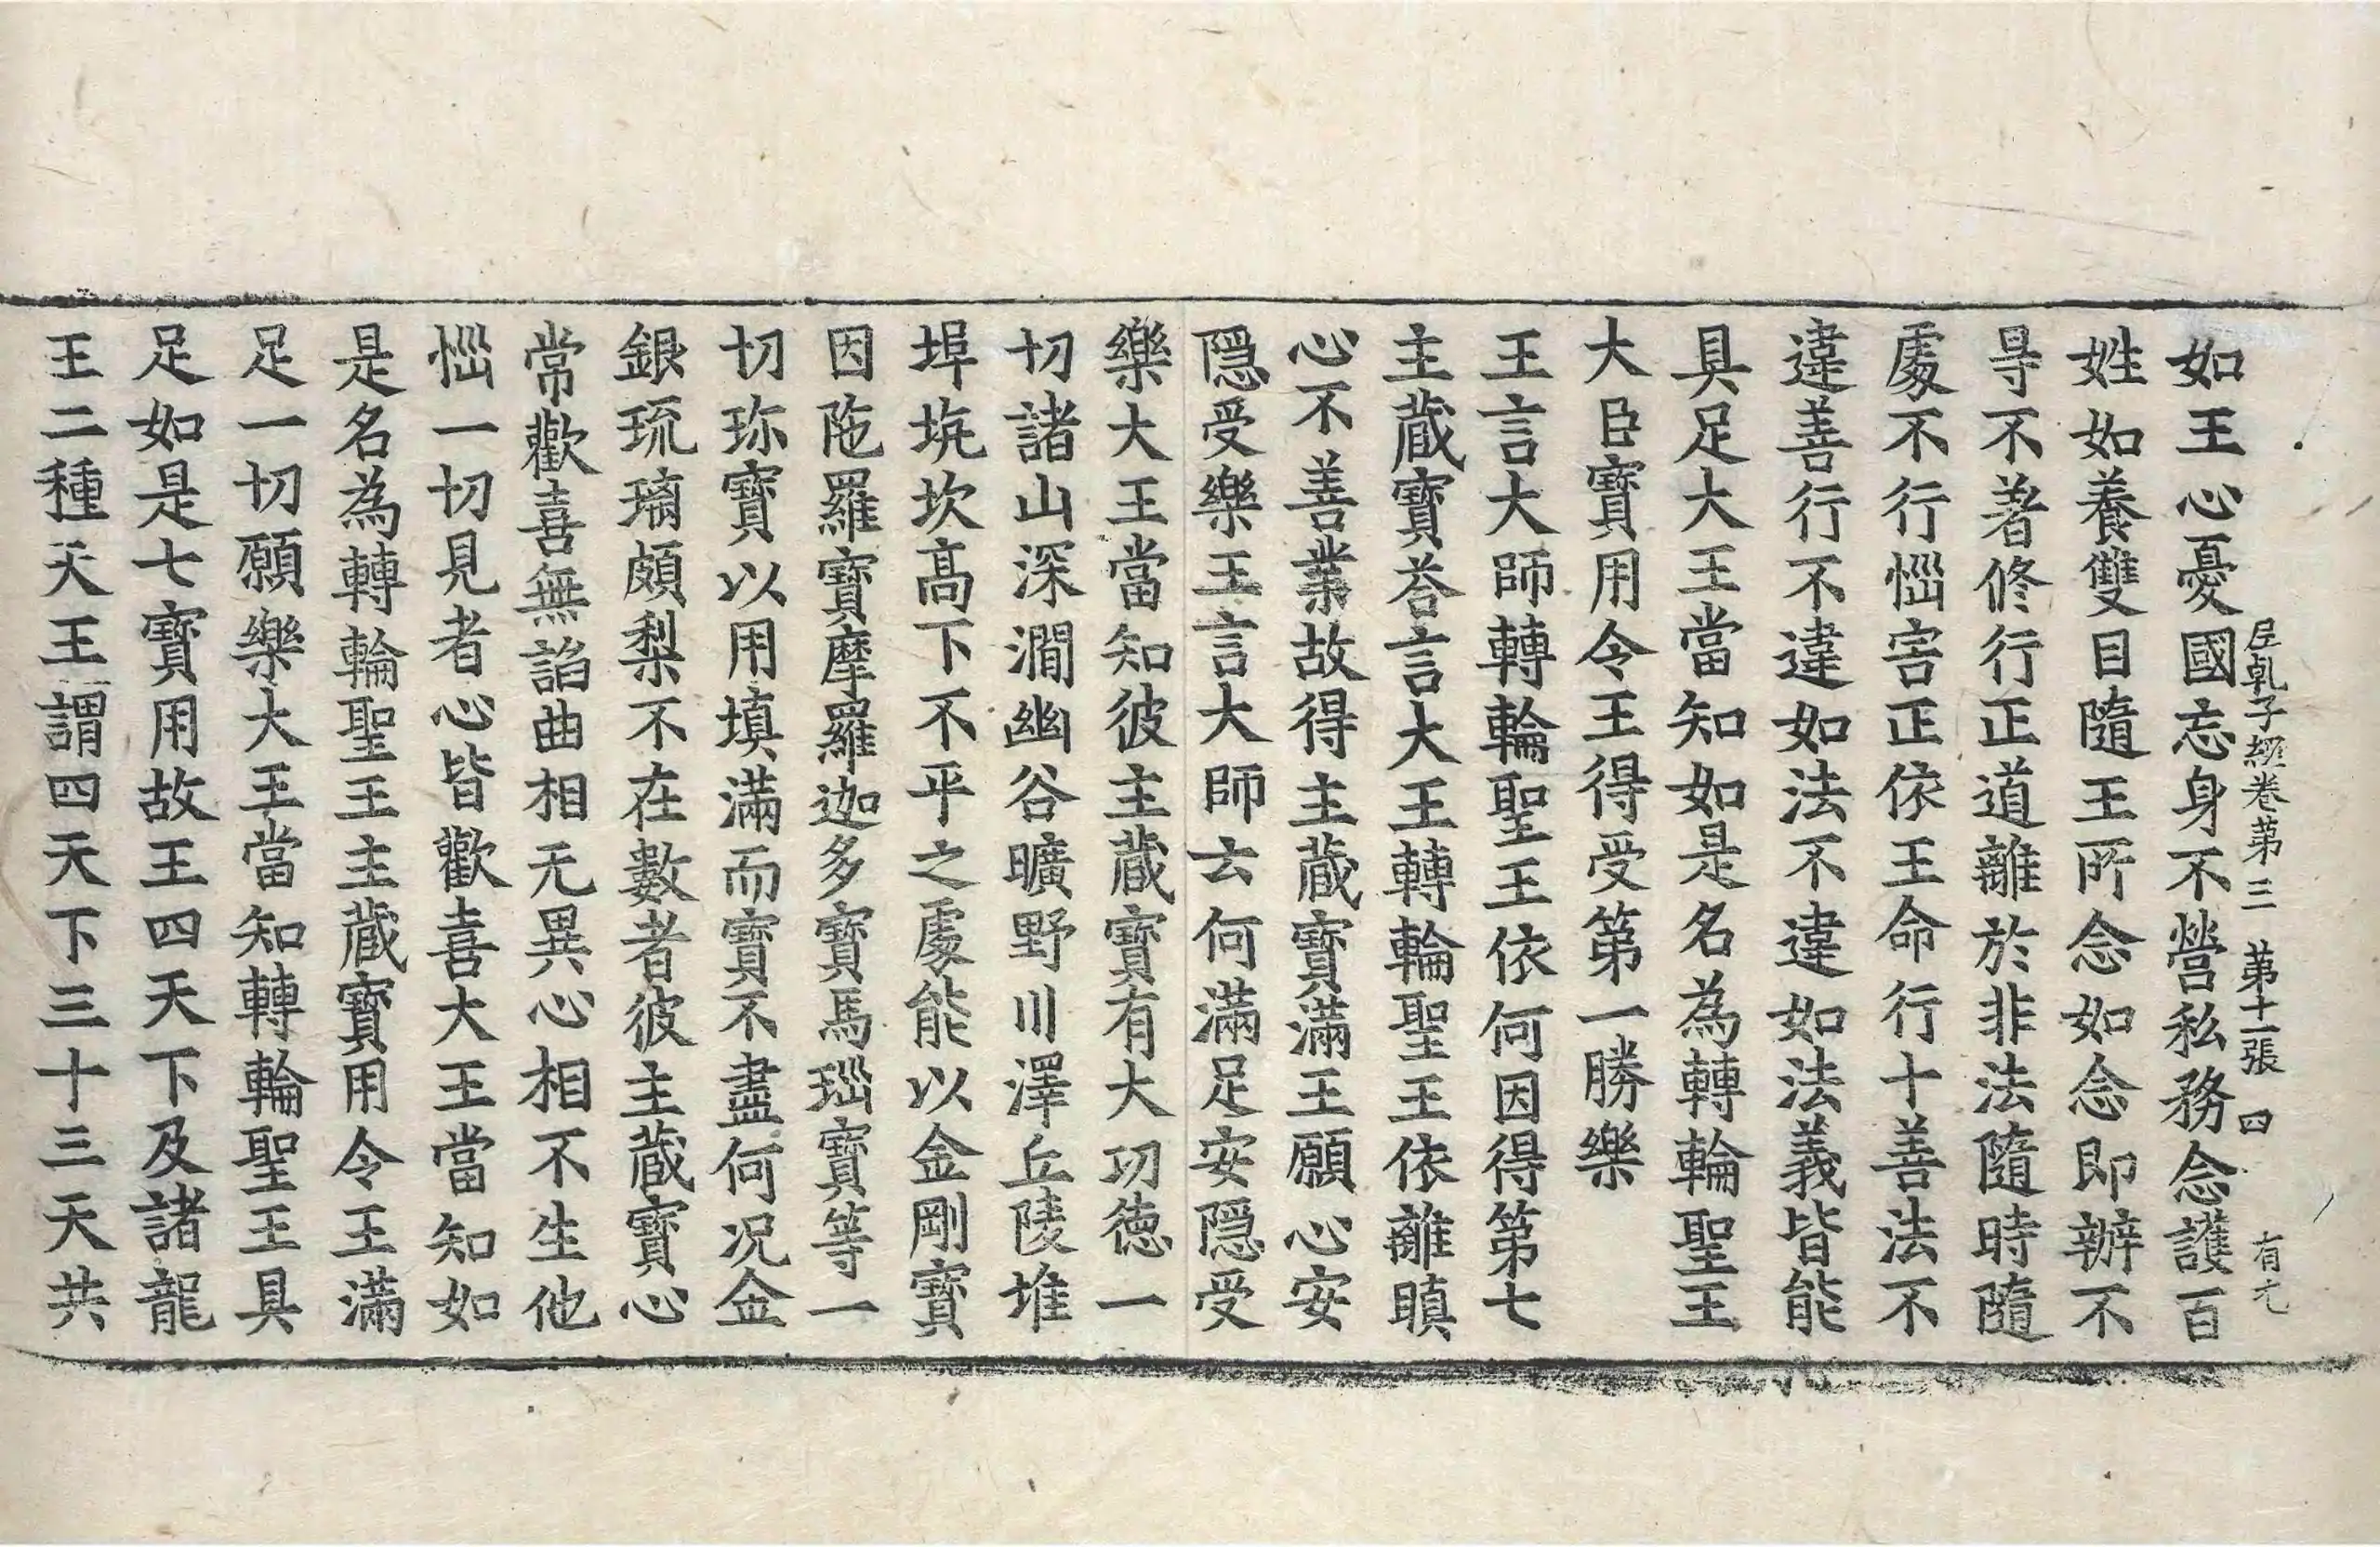 如王心憂國忘身不營私務念護百
𡰱乹子経卷第三　第十一張　四　有元
姓如養雙目隨王所念如念即辦不
㝵不著修行正道離於非法隨時隨
處不行惱害正依王命行十善法不
違善行不違如法不違如法義皆能
具足大王當知如是名為轉輪聖王
大臣寶用令王得受第一勝樂
王言大師轉輪聖王依何因得第七
主蔵寶荅言大王轉輪聖王依離瞋
心不善業故得主蔵寶滿王願心安
隱受樂王言大師云何滿足安隱受
樂大王當知彼主蔵寶有大功徳一
切諸山深澗幽谷曠野川澤丘陵堆
埠坑坎髙下不平之處能以金剛寶
因陁羅寶摩羅迦多寶馬瑙寶等一
切珎寶以用填滿而寶不盡何况金
銀琉璃頗梨不在數者彼主蔵寶心
常歡喜無諂曲相无異心相不生他
惱一切見者心皆歡喜大王當知如
是名為轉輪聖王主蔵寶用令王滿
足一切願樂大王當知轉輪聖王具
足如是七寶用故王四天下及諸龍
王二種天王謂四天下三十三天共